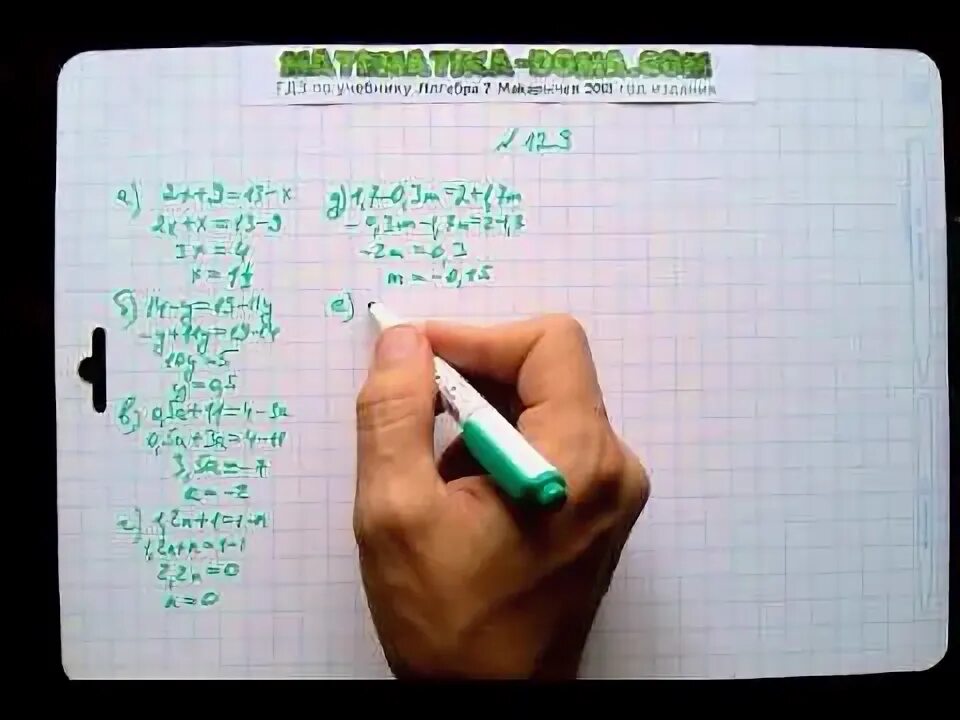 MATEMATIKA-DOMA.COM
ГДЗ по учебнику Алгебра 7 Макарычев 2001 год издания
№ 129
а) 2x+9=13-x
2x+x=13-9
3x=4
x=1⅓
б) 14-y=19-11y
-y+11y=19-14
10y=5
y=0,5
в) 0,5a+11=4-3a
0,5a+3a=4-11
3,5a=-7
a=-2
г) 1,2n+1=1-n
1,2n+n=1-1
2,2n=0
n=0
д) 1,7-0,3m=2+1,7m
-0,3m-1,7m=2-1,7
-2m=0,3
m=-0,15
е)